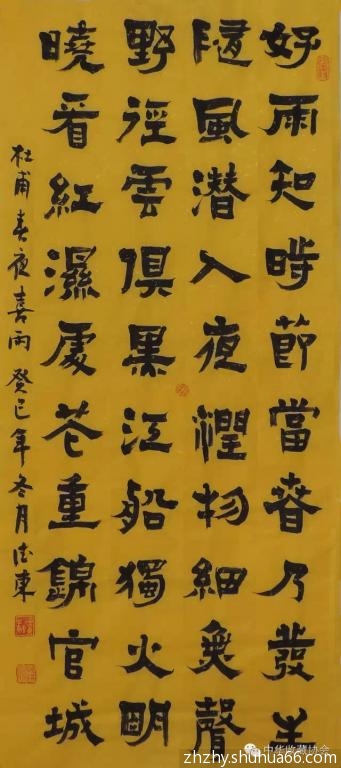 好雨知時節當春乃發生
隨風潛入夜潤物細無聲
野徑雲俱黑江船獨火明
曉看紅濕處花重錦官城
杜甫春夜喜雨癸巳年冬月德東
中华收藏协会
zhzhy.shuhua66.com